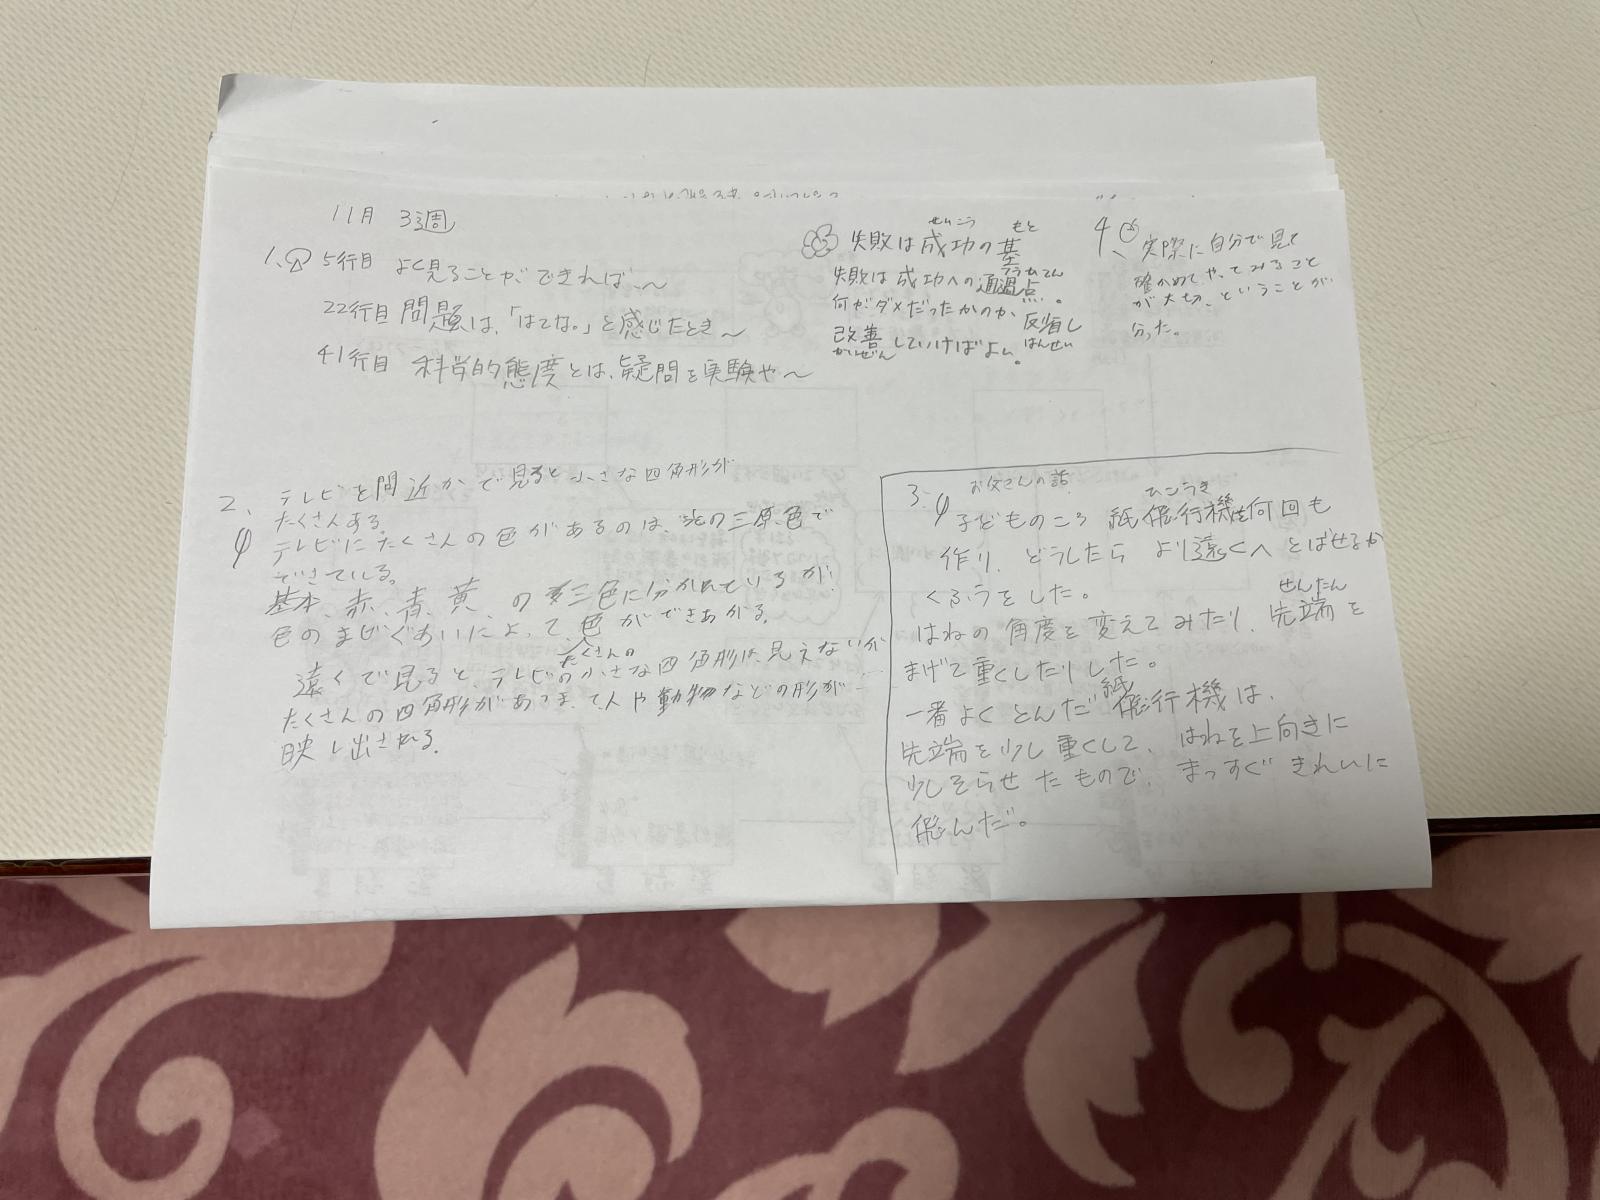 11月 3週
1、 5行目 よく見ることができれば、〜
22行目 問題は、「はてな。」と感じたとき〜
41行目 科学的態度とは、疑問を実験や〜
せいこう もと
失敗は成功の基
失敗は成功への通過点。
つうかてん
何がダメだったかのか、反省し
はんせい
改善していけばよい。
かいぜん
4、実際に自分で見て
確かめてやってみること
が大切、ということが
分った。
2、 テレビを間近かで見ると小さな四角形が
たくさんある。
テレビにたくさんの色があるのは、光の三原色で
できている。
基本、赤、青、黄、の三色に分かれているが
色のまじぐあいによって、色ができあがる。
たくさんの
遠くで見ると、テレビの小さな四角形は見えないが
たくさんの四角形があつまって、人や動物などの形が
映し出される。
3、 お父さんの話
ひこうき
子どものころ 紙飛行機を何回も
作り、どうしたら より遠くへ とばせるか
くふうをした。
せんたん
はねの角度を変えてみたり、先端を
まげて重くしたりした。
一番よくとんだ紙飛行機は、
先端を少し重くして、はねを上向きに
少しそらせたもので、まっすぐきれいに
飛んだ。